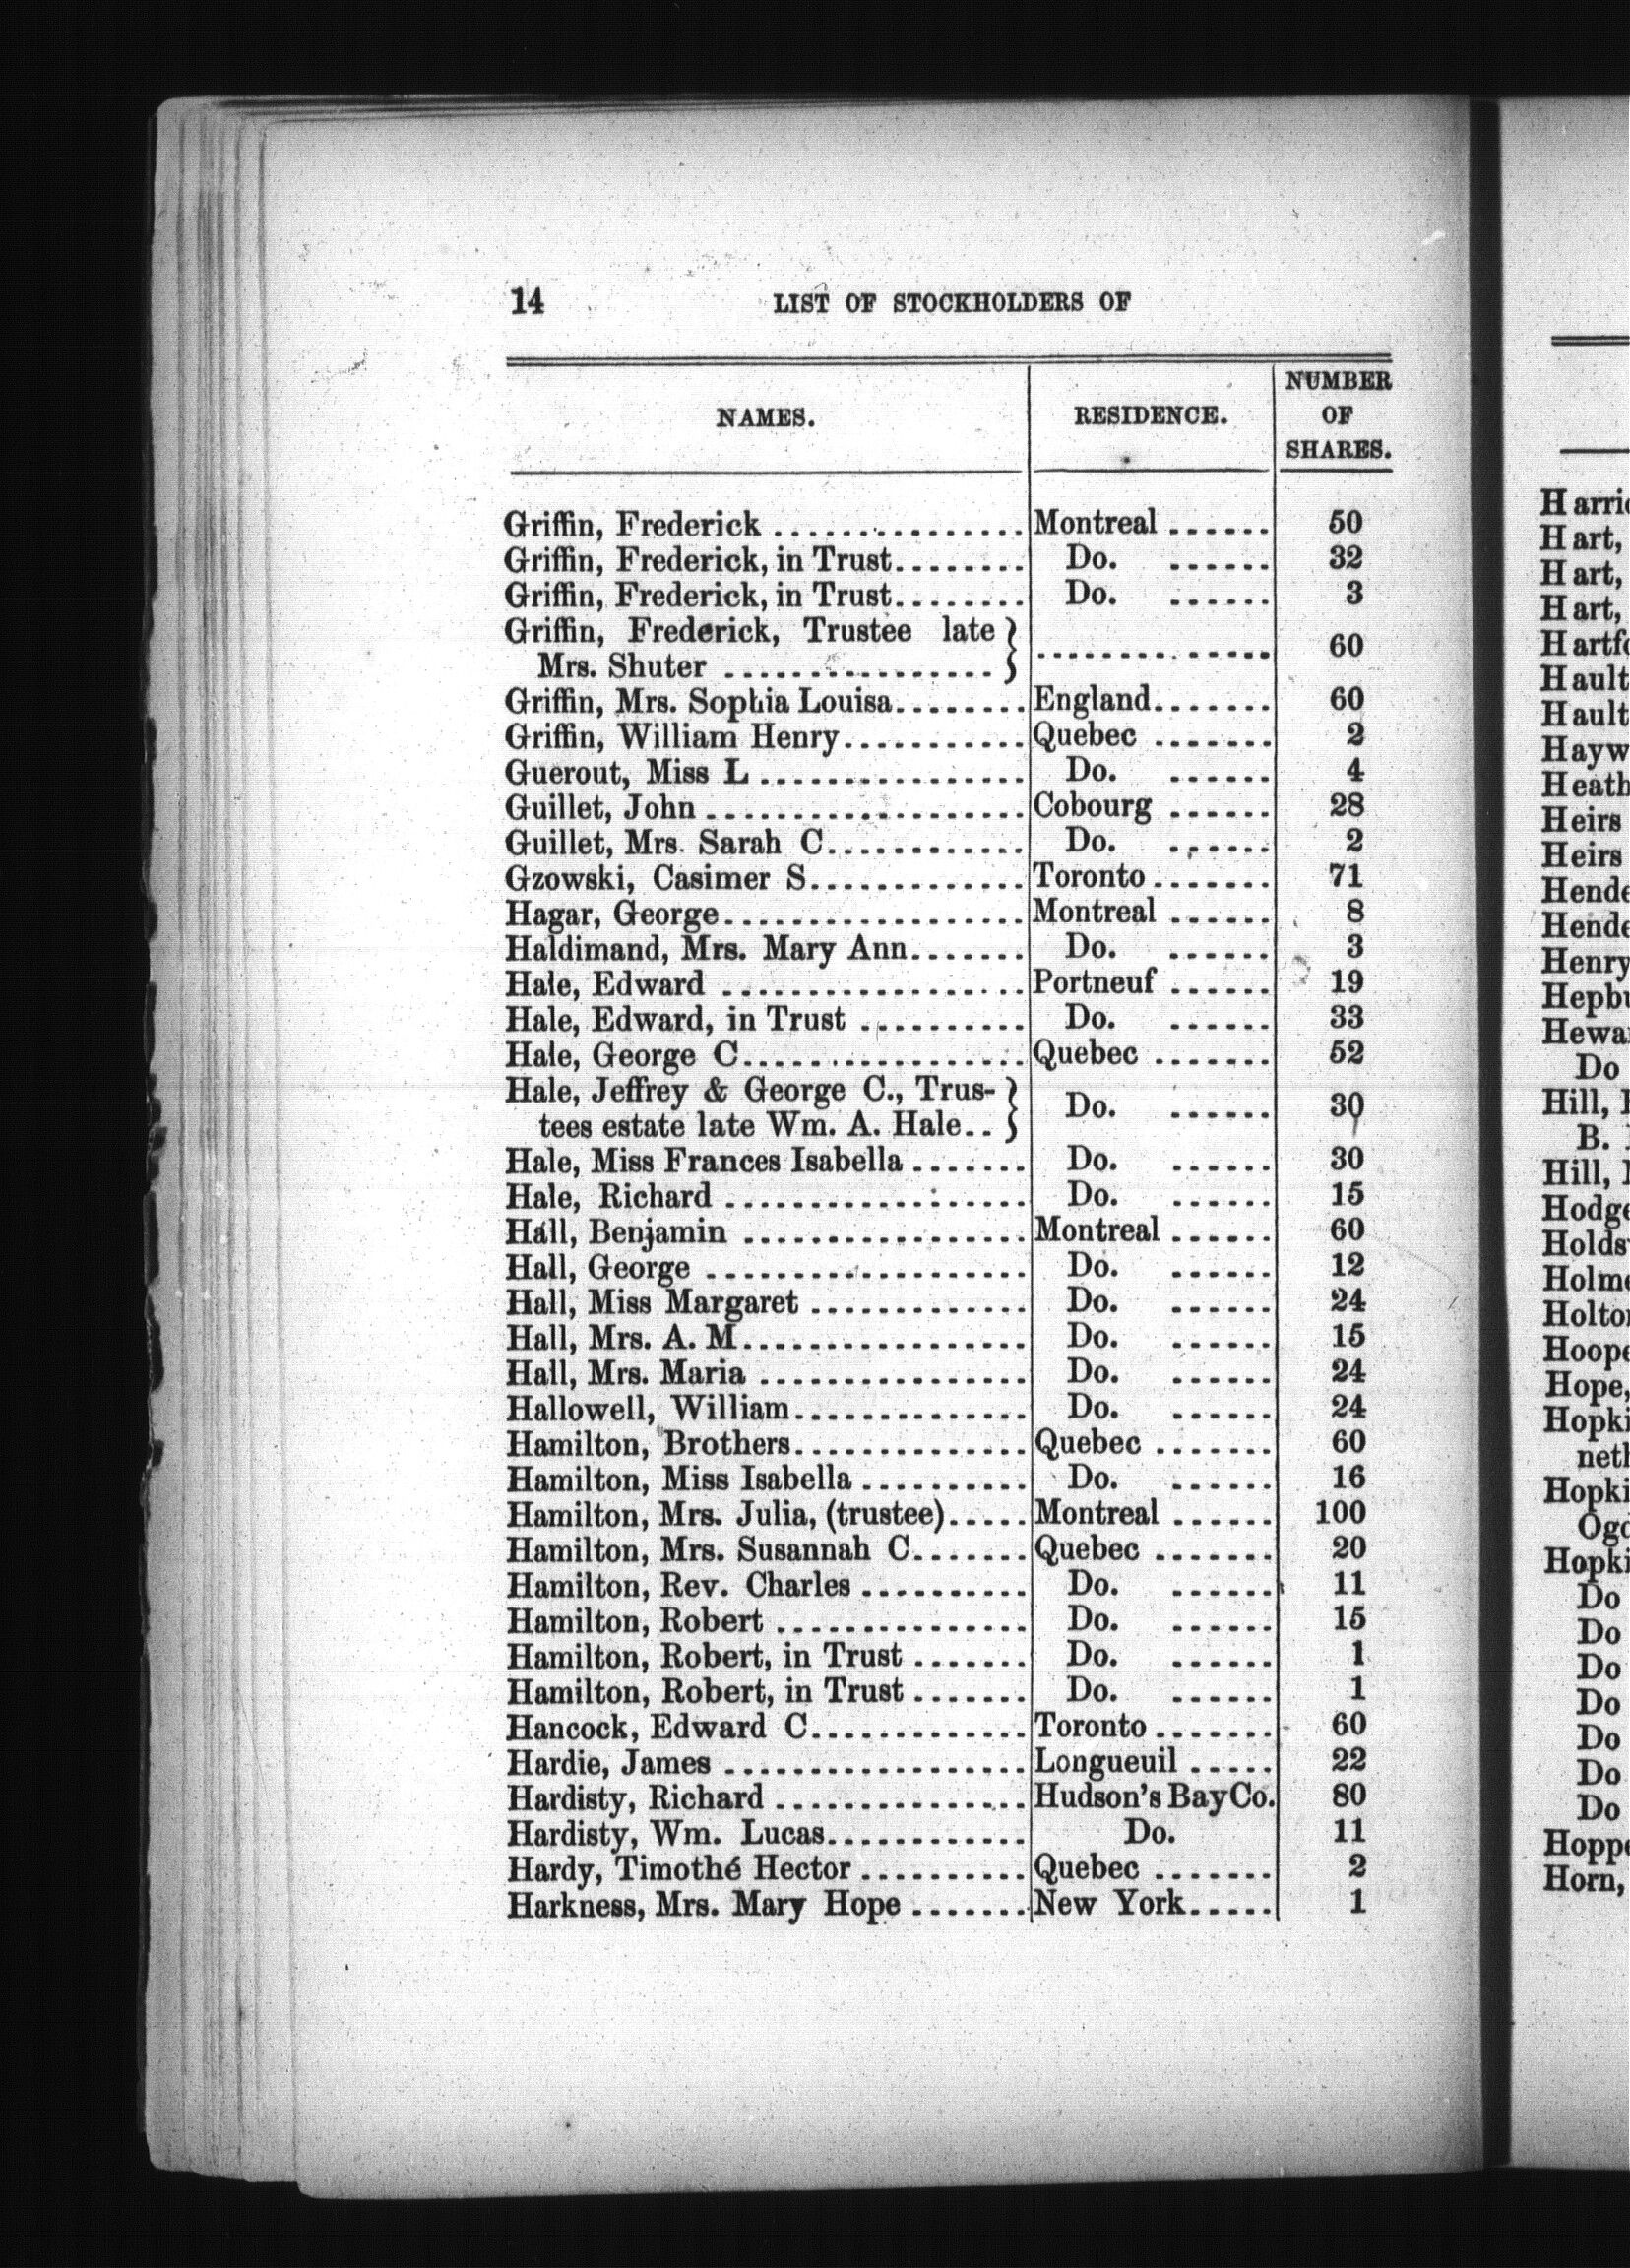 14 LIST OF STOCKHOLDERS OF
NAMES. RESIDENCE. NUMBER OF SHARES.
Griffin, Frederick Montreal 50
Griffin, Frederick, in Trust Do. 32
Griffin, Frederick, in Trust Do. 3
Griffin, Frederick, Trustee late
Mrs. Shuter 60
Griffin, Mrs. Sophia Louisa England 60
Griffin, William Henry Quebec 2
Guerout, Miss L Do. 4
Guillet, John Cobourg 28
Guillet, Mrs. Sarah C Do. 2
Gzowski, Casimer S Toronto 71
Hagar, George Montreal 8
Haldimand, Mrs. Mary Ann Do. 3
Hale, Edward Portneuf 19
Hale, Edward, in Trust Do. 33
Hale, George C Quebec 52
Hale, Jeffrey & George C., Trus-
tees estate late Wm. A. Hale Do. 30
Hale, Miss Frances Isabella Do. 30
Hale, Richard Do. 15
Hall, Benjamin Montreal 60
Hall, George Do. 12
Hall, Miss Margaret Do. 24
Hall, Mrs. A. M Do. 15
Hall, Mrs. Maria Do. 24
Hallowell, William Do. 24
Hamilton, Brothers Quebec 60
Hamilton, Miss Isabella Do. 16
Hamilton, Mrs. Julia, (trustee) Montreal 100
Hamilton, Mrs. Susannah C Quebec 20
Hamilton, Rev. Charles Do. 11
Hamilton, Robert Do. 15
Hamilton, Robert, in Trust Do. 1
Hamilton, Robert, in Trust Do. 1
Hancock, Edward C Toronto 60
Hardie, James Longueuil 22
Hardisty, Richard Hudson's Bay Co. 80
Hardisty, Wm. Lucas Do. 11
Hardy, Timothé Hector Quebec 2
Harkness, Mrs. Mary Hope New York 1
Hart,
Hart,
Hart,
Heirs
Heirs
Do
Hill,
B.
Hill,
Hope,
Do
Do
Do
Do
Do
Do
Do
Horn,